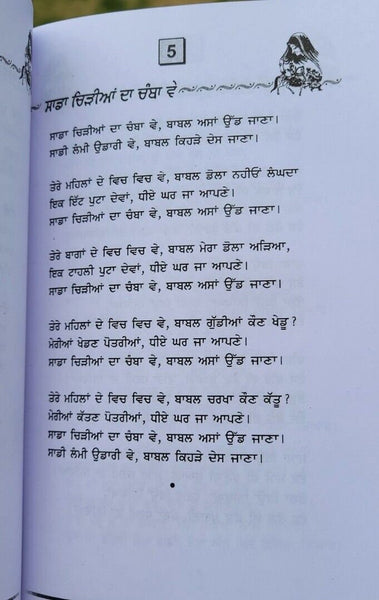 5
ਸਾਡਾ ਚਿੜੀਆਂ ਦਾ ਚੰਬਾ ਵੇ
ਸਾਡਾ ਚਿੜੀਆਂ ਦਾ ਚੰਬਾ ਵੇ, ਬਾਬਲ ਅਸਾਂ ਉੱਡ ਜਾਣਾ।
ਸਾਡੀ ਲੰਮੀ ਉਡਾਰੀ ਵੇ, ਬਾਬਲ ਕਿਹੜੇ ਦੇਸ ਜਾਣਾ।
ਤੇਰੇ ਮਹਿਲਾਂ ਦੇ ਵਿਚ ਵਿਚ ਵੇ, ਬਾਬਲ ਡੋਲਾ ਨਹੀਓਂ ਲੰਘਦਾ
ਇਕ ਇੱਟ ਪੁਟਾ ਦੇਵਾਂ, ਧੀਏ ਘਰ ਜਾ ਆਪਣੇ।
ਸਾਡਾ ਚਿੜੀਆਂ ਦਾ ਚੰਬਾ ਵੇ, ਬਾਬਲ ਅਸਾਂ ਉੱਡ ਜਾਣਾ।
ਤੇਰੇ ਬਾਗਾਂ ਦੇ ਵਿਚ ਵਿਚ ਵੇ, ਬਾਬਲ ਮੇਰਾ ਡੋਲਾ ਅੜਿਆ,
ਇਕ ਟਾਹਲੀ ਪੁਟਾ ਦੇਵਾਂ, ਧੀਏ ਘਰ ਜਾ ਆਪਣੇ।
ਸਾਡਾ ਚਿੜੀਆਂ ਦਾ ਚੰਬਾ ਵੇ, ਬਾਬਲ ਅਸਾਂ ਉੱਡ ਜਾਣਾ।
ਤੇਰੇ ਮਹਿਲਾਂ ਦੇ ਵਿਚ ਵਿਚ ਵੇ, ਬਾਬਲ ਗੁੱਡੀਆਂ ਕੌਣ ਖੇਡੂ ?
ਮੇਰੀਆਂ ਖੇਡਣ ਪੋਤਰੀਆਂ, ਧੀਏ ਘਰ ਜਾ ਆਪਣੇ।
ਸਾਡਾ ਚਿੜੀਆਂ ਦਾ ਚੰਬਾ ਵੇ, ਬਾਬਲ ਅਸਾਂ ਉੱਡ ਜਾਣਾ।
ਤੇਰੇ ਮਹਿਲਾਂ ਦੇ ਵਿਚ ਵਿਚ ਵੇ, ਬਾਬਲ ਚਰਖਾ ਕੌਣ ਕੱਤੂ ?
ਮੇਰੀਆਂ ਕੱਤਣ ਪੋਤਰੀਆਂ, ਧੀਏ ਘਰ ਜਾ ਆਪਣੇ।
ਸਾਡਾ ਚਿੜੀਆਂ ਦਾ ਚੰਬਾ ਵੇ, ਬਾਬਲ ਅਸਾਂ ਉੱਡ ਜਾਣਾ।
ਸਾਡੀ ਲੰਮੀ ਉਡਾਰੀ ਵੇ, ਬਾਬਲ ਕਿਹੜੇ ਦੇਸ ਜਾਣਾ।